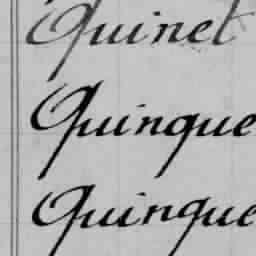 Quinet
Quinque
Quinque